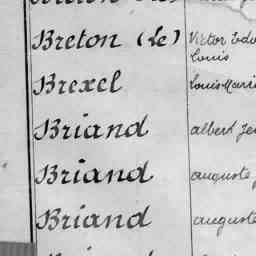 Breton (Le) Victor Edu
Louis
Brexel Louis Mari
Briand albert Je
Briand auguste
Briand auguste